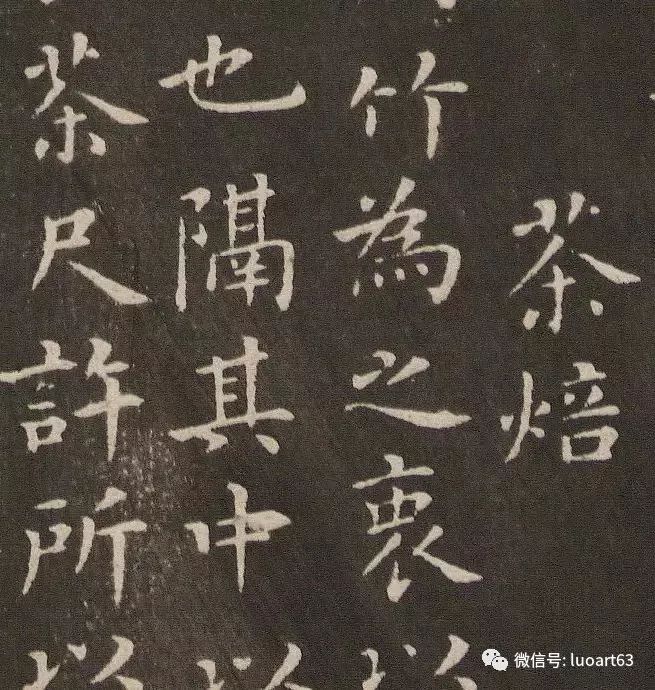 茶焙
竹為之裹以
也隔其中以
茶尺許所以
微信号: luoart63